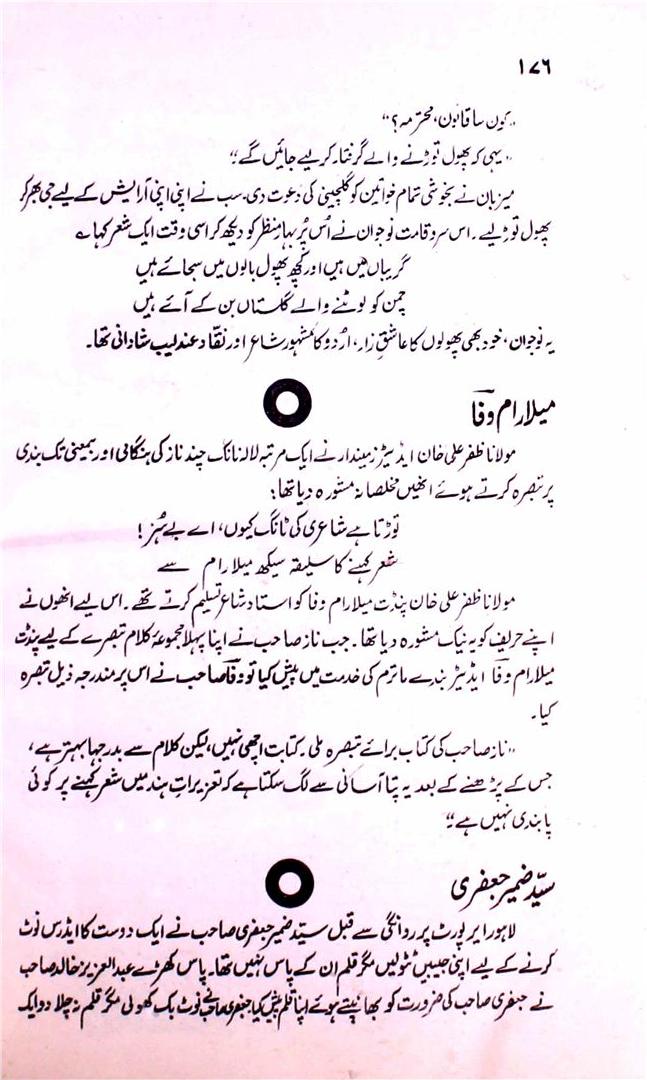 ۱۷۶
"کون سا قانون، محترمہ؟"
"یہی کہ پھول توڑنے والے گرفتار کر لیے جائیں گے۔"
میزبان نے بخوشی تمام خواتین کو گلچینی کی دعوت دی۔ سب نے اپنی اپنی آرایش کے لیے جی بھر کر
پھول توڑ لیے۔ اس سروقامت نوجوان نے اُس پُر بہار منظر کو دیکھ کر اسی وقت ایک شعر کہا ؎
گریباں میں ہیں اور کچھ پھول بالوں میں سجائے ہیں
چمن کو لوٹنے والے گلستاں بن کے آئے ہیں
یہ نوجوان، خود بھی پھولوں کا عاشقِ زار، اردو کا مشہور شاعر اور نقاد عندلیب شادانی تھا۔
میلا رام وفاؔ
مولانا ظفر علی خان ایڈیٹر زمیندار نے ایک مرتبہ لالہ نانک چند ناز کی ہنگامی اور بمعنی تک بندی
پر تبصرہ کرتے ہوئے انھیں مخلصانہ مشورہ دیا تھا:
توڑتا ہے شاعری کی ٹانگ کیوں، اے بے ہُنر!
شعر کہنے کا سلیقہ سیکھ میلا رام سے
مولانا ظفر علی خان پنڈت میلا رام وفا کو استاد شاعر تسلیم کرتے تھے۔ اس لیے انھوں نے
اپنے حریف کو یہ نیک مشورہ دیا تھا۔ جب ناز صاحب نے اپنا پہلا مجموعۂ کلام تبصرے کے لیے پنڈت
میلا رام وفاؔ ایڈیٹر بندے ماترم کی خدمت میں پیش کیا تو وفاؔ صاحب نے اس پر مندرجہ ذیل تبصرہ
کیا۔
"ناز صاحب کی کتاب برائے تبصرہ ملی۔ کتابت اچھی نہیں، لیکن کلام سے بدرجہا بہتر ہے،
جس کے پڑھنے کے بعد یہ پتا آسانی سے لگ سکتا ہے کہ تعزیراتِ ہند میں شعر کہنے پر کوئی
پابندی نہیں ہے۔"
سیّد ضمیر جعفری
لاہور ایر پورٹ پر روانگی سے قبل سید ضمیر جعفری صاحب نے ایک دوست کا ایڈرس نوٹ
کرنے کے لیے اپنی جیبیں ٹٹولیں مگر قلم ان کے پاس نہیں تھا۔ پاس کھڑے عبدالعزیز خالد صاحب
نے جعفری صاحب کی ضرورت کو بھانپتے ہوئے اپنا قلم پیش کیا جعفری صاحب نے نوٹ بک کھولی مگر قلم نہ چلا دو ایک